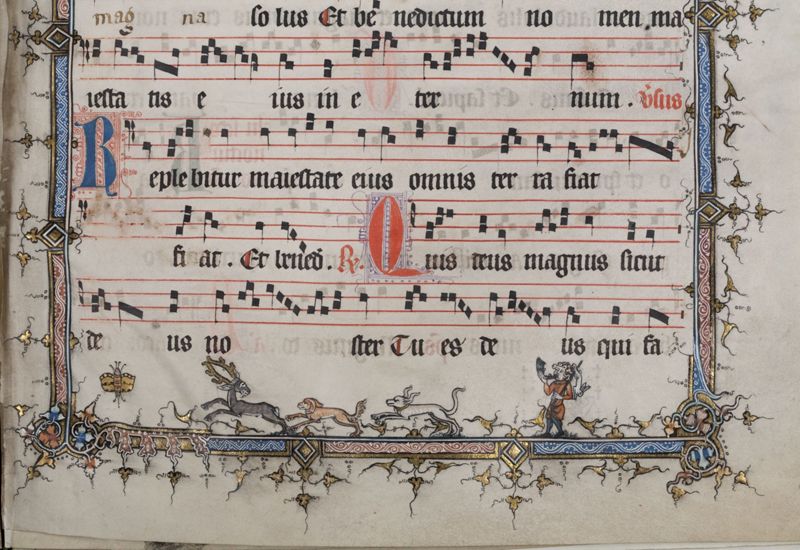 mag na so lus Et be nedictum no men ma
iesta tis e ius in e ter num . v̇sus
Reple bitur maiestate eius omnis ter ra fiat
fi at . Et bened̄ . R̷. Quis deus magnus sicut
de us no ster Tu es de us qui fa